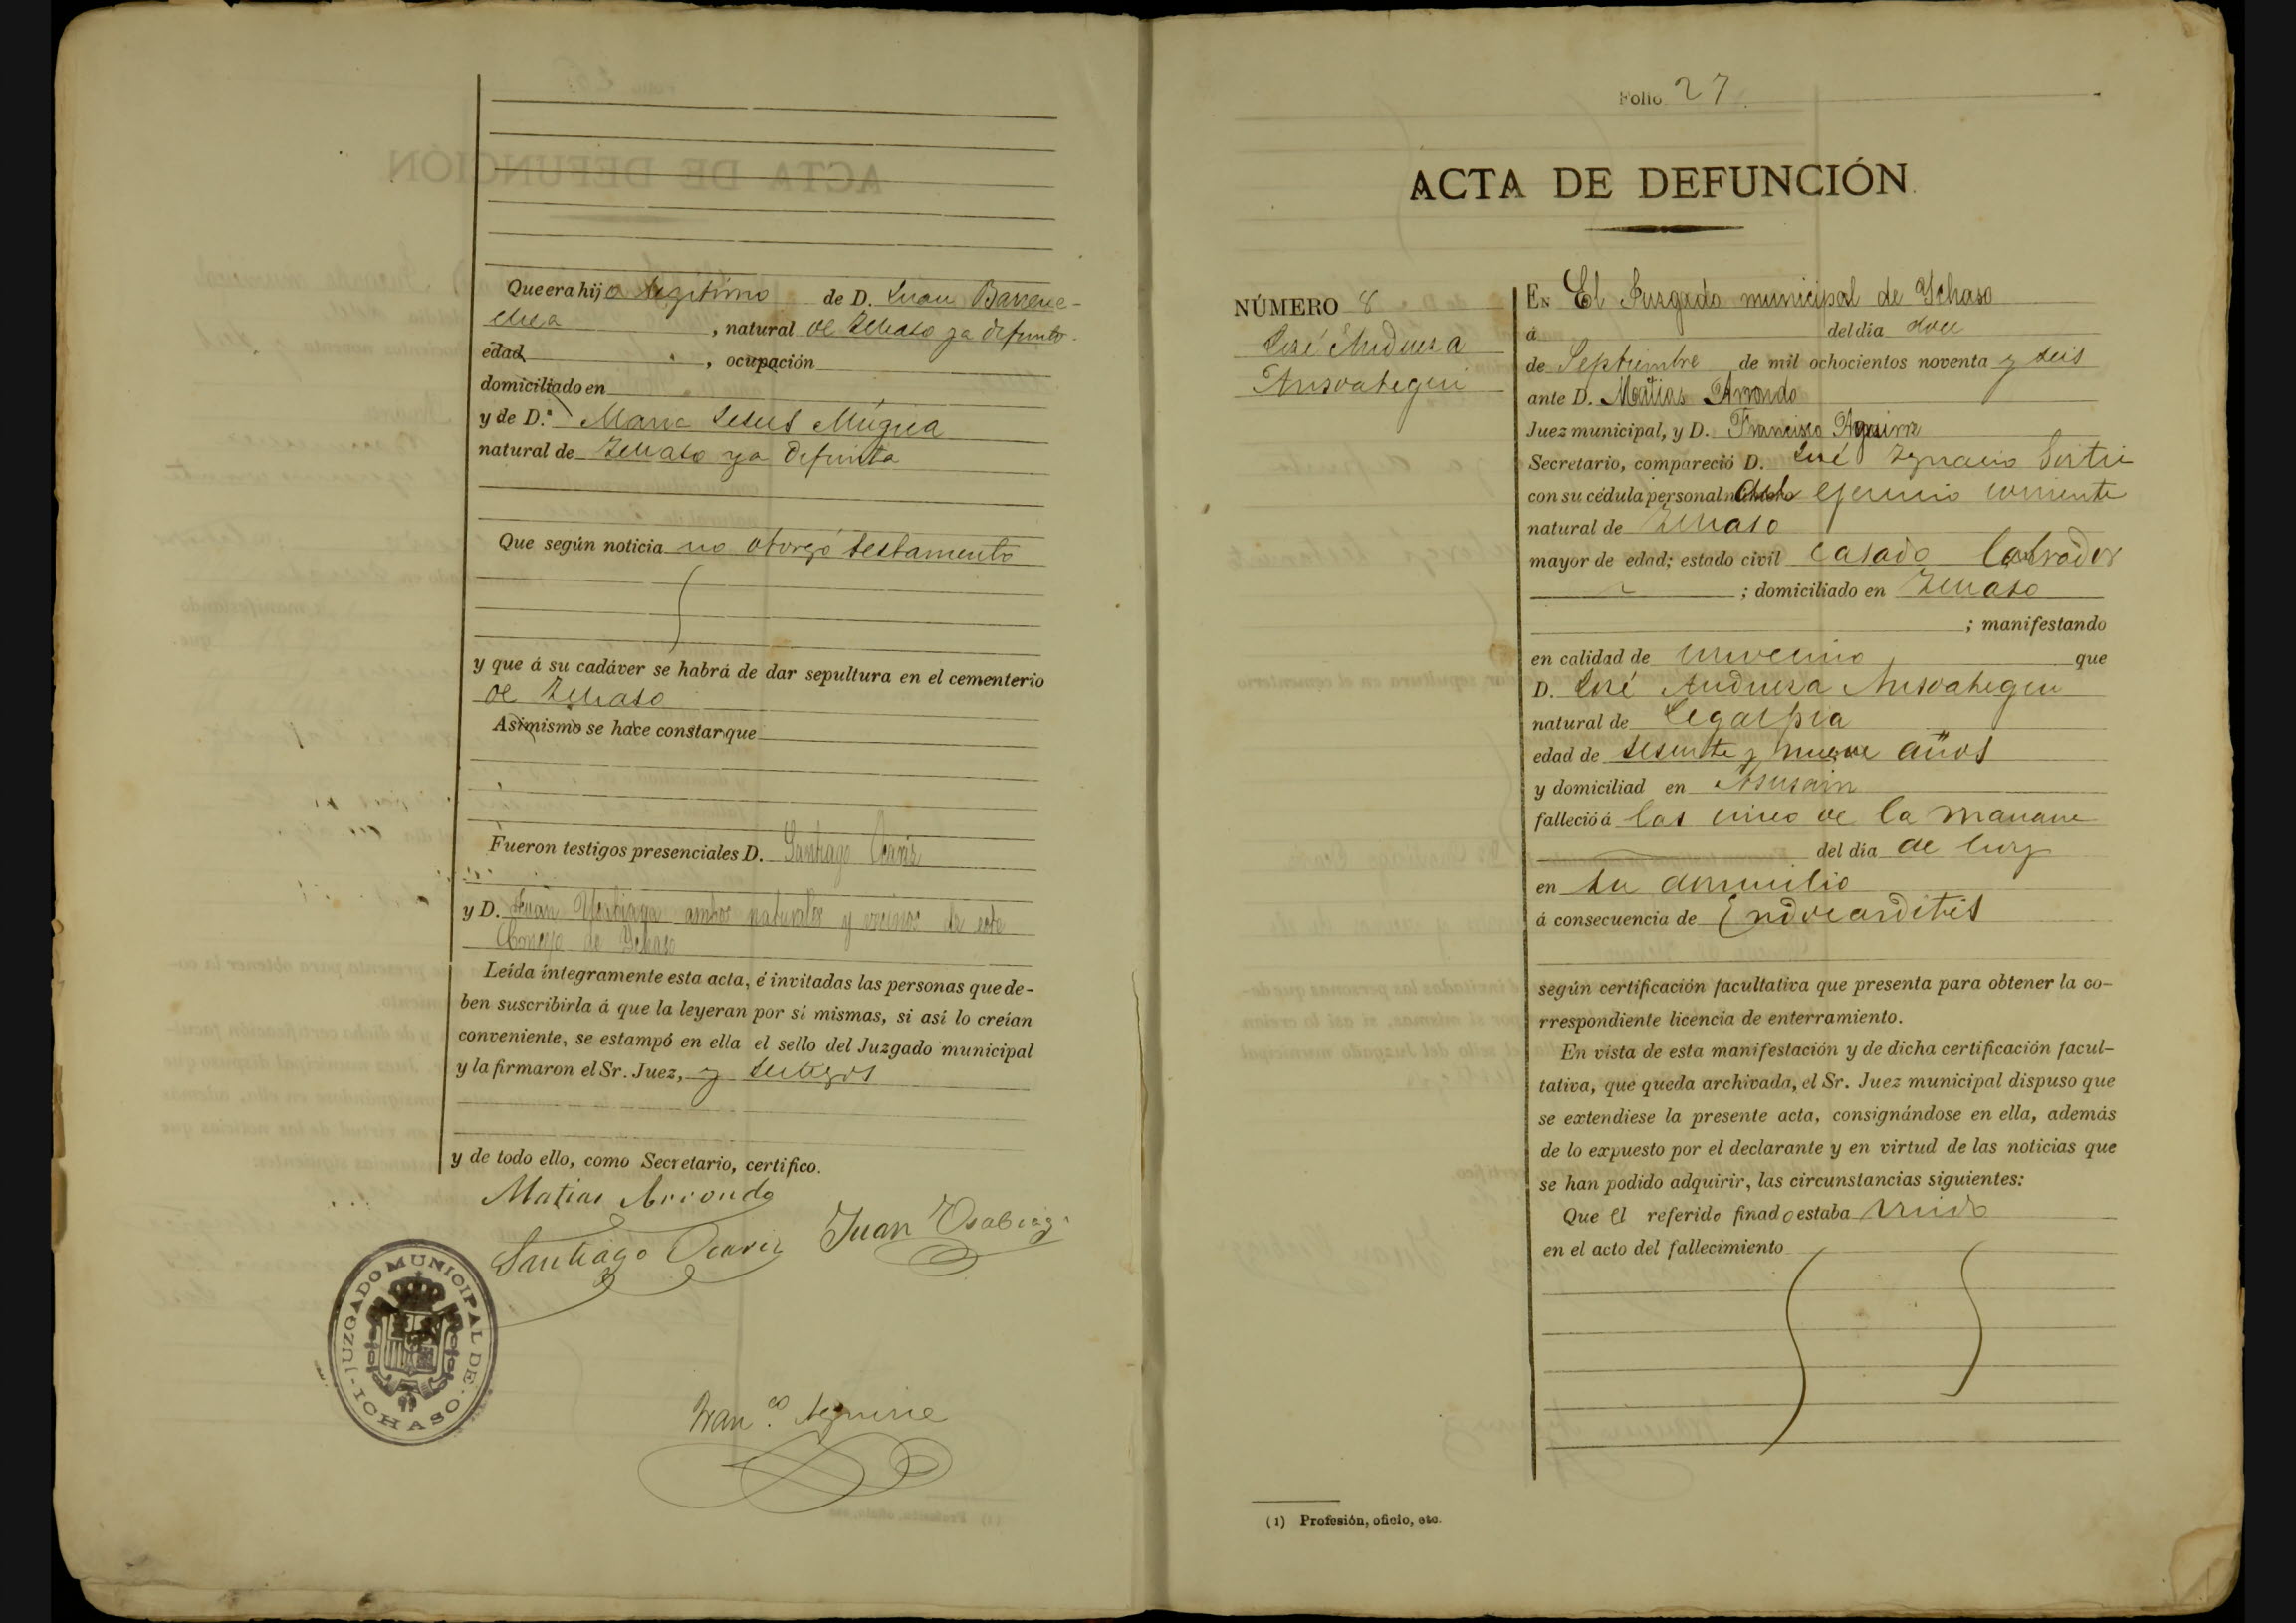 Que era hijo legitimo de D. Juan Barrene-
chea, natural de Ichaso ya difunto.
edad, ocupación
domiciliado en
y de D.ª Maria Jesus Múgica
natural de Ichaso ya difunta
Que según noticia no otorgó testamento
y que á su cadáver se habrá de dar sepultura en el cementerio
de Ichaso
Asimismo se hace constar que
Fueron testigos presenciales D. Santiago Ocariz
y D. Juan Usabiaga ambos naturales y vecinos de este
Concejo de Ychaso
Leída íntegramente esta acta, é invitadas las personas que de-
ben suscribirla á que la leyeran por sí mismas, si así lo creían
conveniente, se estampó en ella el sello del Juzgado municipal
y la firmaron el Sr. Juez, y testigos
y de todo ello, como Secretario, certifico.
Matias Arrondo
Santiago Ocariz Juan Usabiaga
JUZGADO MUNICIPAL DE ICHASO
Fran.co Aguirre
Folio 27
ACTA DE DEFUNCIÓN
NÚMERO 8
José Andueza
En El Juzgado municipal de Ychaso
á del día doce
de Septiembre de mil ochocientos noventa y seis
ante D. Matias Arrondo
Juez municipal, y D. Francisco Aguirre
Secretario, compareció D. José Ygnacio
con su cédula personal del ejercicio corriente
natural de Ichaso
mayor de edad; estado civil casado labrador
; domiciliado en Ichaso
; manifestando
en calidad de que
D. José Andueza
natural de Legazpia
edad de sesenta y nueve años
y domiciliad en
falleció á las cinco de la manana
del día de hoy
en su domicilio
á consecuencia de Endocarditis
según certificación facultativa que presenta para obtener la co-
rrespondiente licencia de enterramiento.
En vista de esta manifestación y de dicha certificación facul-
tativa, que queda archivada, el Sr. Juez municipal dispuso que
se extendiese la presente acta, consignándose en ella, además
de lo expuesto por el declarante y en virtud de las noticias que
se han podido adquirir, las circunstancias siguientes:
Que el referido finado estaba viudo
en el acto del fallecimiento
(1) Profesión, oficio, etc.